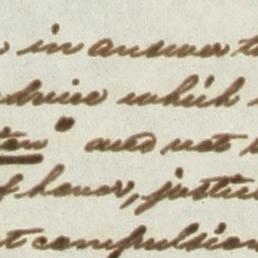 in answer to
advice which
and not
of honor, justice
compulsion